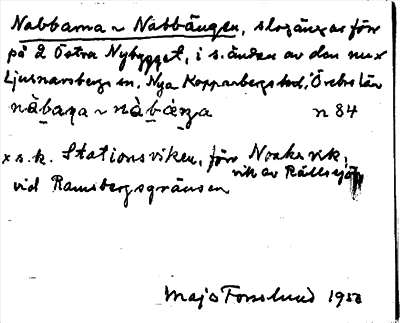 Nabbarna ~ Nabbängen, slogängar förr
på 2 Östra Nybygget, i s. ändan av den nu x
Ljusnarsbergs sn, Nya Kopparbergs hd, Örebro län
nàbaṇa ~ nàbæŋa n 84
x s.k. Stationsviken, förr Noaks vik,
vik av Rällsjön
vid Ramsbergsgränsen
Maja Forsslund 1933